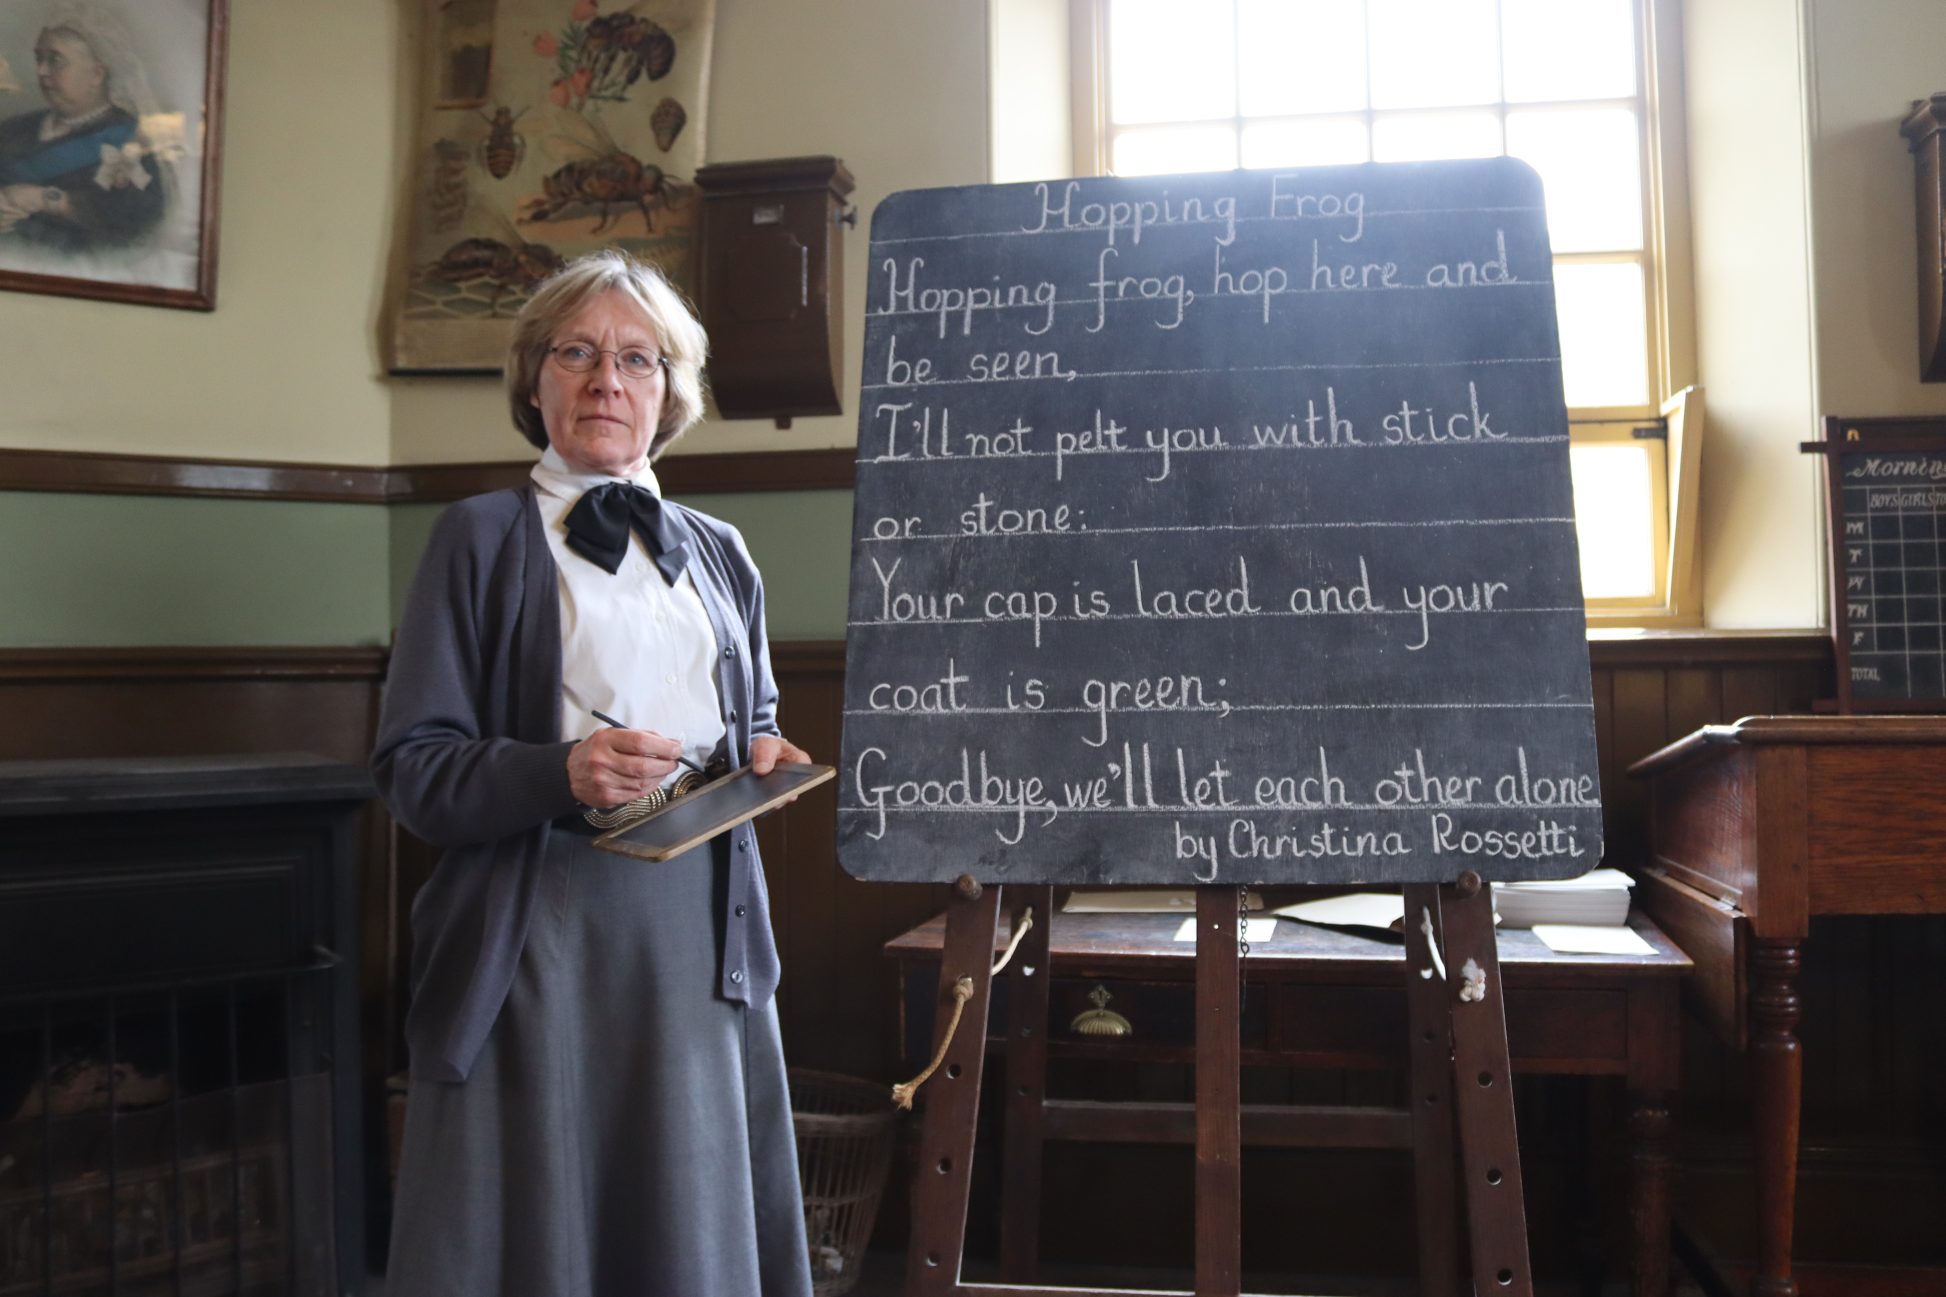 Hopping Frog
Hopping frog, hop here and
be seen,
I'll not pelt you with stick
or stone:
Your cap is laced and your
coat is green;
Goodbye, we'll let each other alone.
by Christina Rossetti
Morning
BOYS GIRLS
M
T
W
TH
F
TOTAL